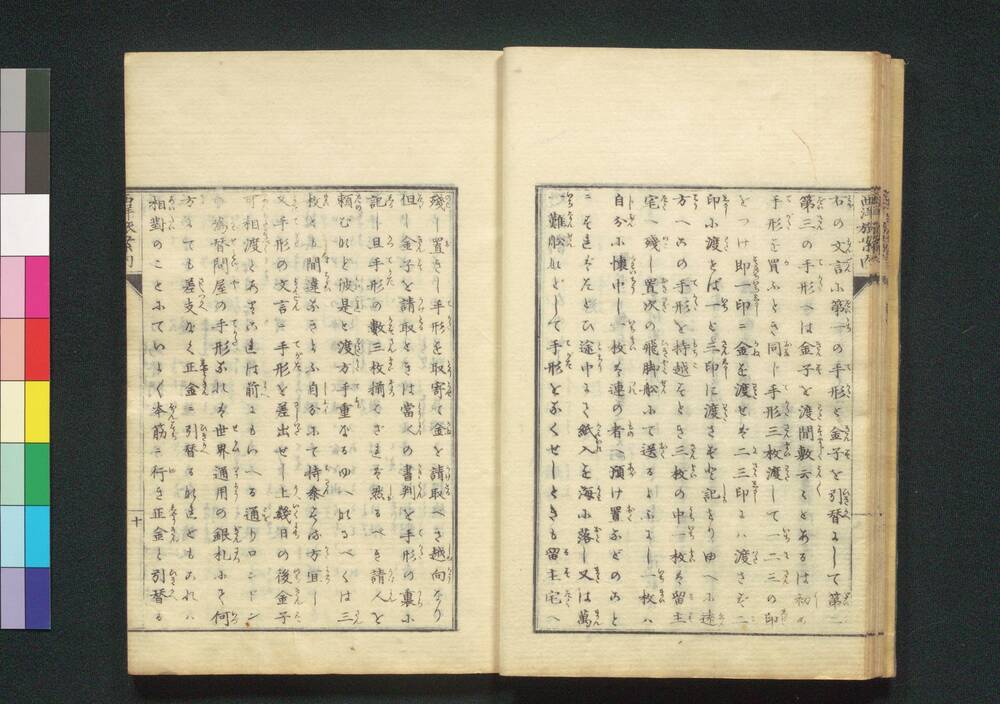 右の文言ふ第一の手形と金子を引替まして第二
第三の手形へは金子を渡間敷云々とあるは初め
手形を買ふとき同じ手形三枚渡して一二三の印
をつけ即一印ニ金を渡せば二三印ニハ渡さず二
印ふ渡せば一と三印に渡さずと記せり由へふ遠
方へこの手形を持越すとき三枚の中一枚は留主
宅へ残し置次の飛脚舩ふて送るようにし一枚ハ
自分ふ懐中し一枚を連の者へ預け置ふどのこと
ニすればたとひ途中にて紙入を海ふ落し又は萬一
難舩などして手形をなくせしときも留主宅へ
残し置きし手形を取寄て金を請取べき趣向なり
但し金子を請取ときは當人の書判を手形の裏ふ
記し且手形の數三枚揃はざれば然るべき請人を
頼むなど彼是と渡方手重なるゆへなるべくは三
枚とも間違ふきよふ自分ふて持参する方宜し
又手形の文言ニ手形を差出せし上幾日の後金子
可相渡とあるこれは前にもいへる通りロンドン
爲替問屋の手形なれば世界通用の銀札ふて何
方にても差支なく正金ニ引替るなれどもこれハ
相對のことふていよく本筋ニ行き正金と引替る
西洋旅案内
十